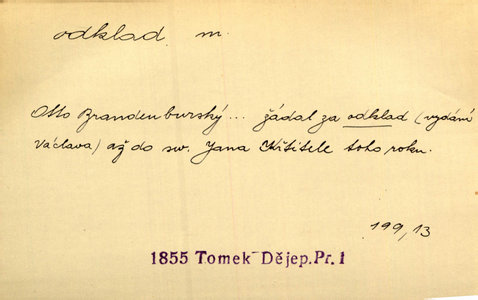 odklad m.
Otto Brandenburský... žádal za odklad (vydání
Václava) až do sv. Jana Křtitele toho roku.
199,13
1855 Tomek Dějep. Pr. 1